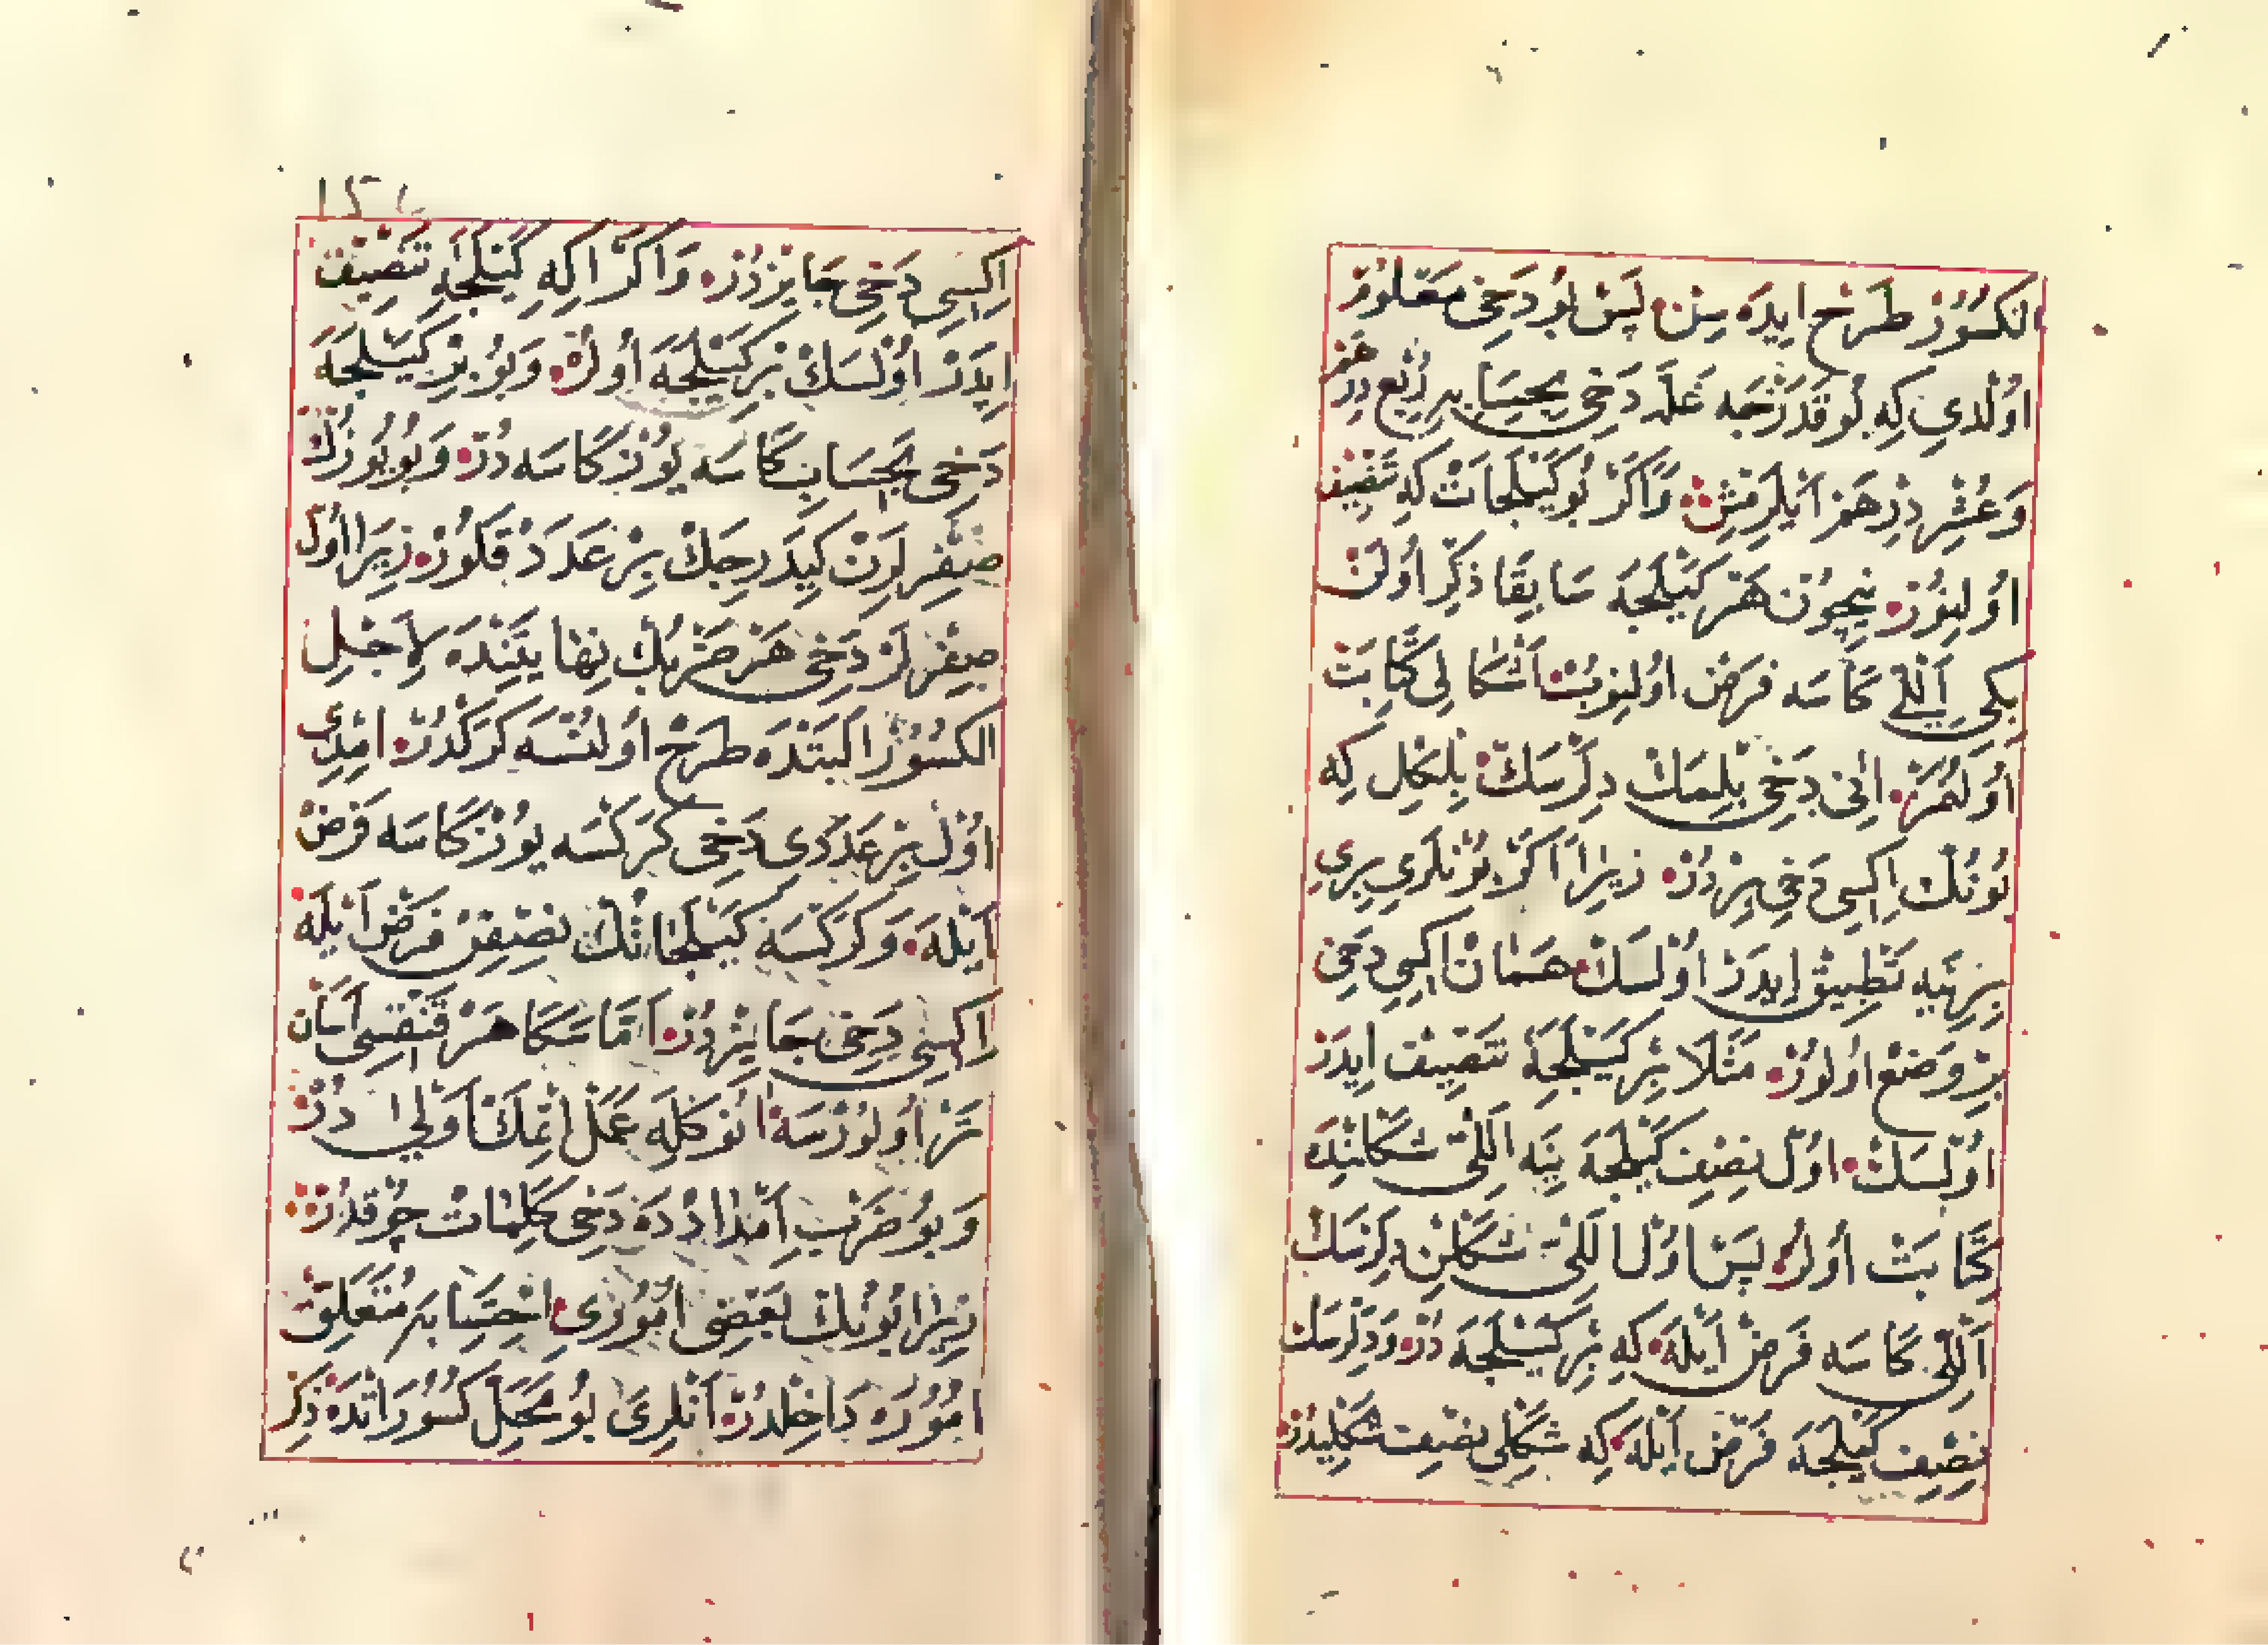 الكسور طرح ايده سن پس بو دخى معلوم
اولدى كه بو قدرجه غله دخى بحساب ربع درهم
وعشر درهم ايلرمش واكر بو كيلجات كه تنصيف
اولينور نيچون هر كيلجه سابقا ذكر اولن
بكى اللى كاسه فرض اولينوب اشكالى كتابت
اولمز انى دخى بلمك دلرسك بلكل كه
بونك اكسى دخى بردر زيرا اكر بونلرى برى
برينه تطبيق ايدر اولسك همان اكسى دخى
بر وضع اولور مثلا بر كيلجه تنصيف ايدر
اولسك اول نصف كيلجه ينه اللى شكلنده
كتابت اولر پس اول اللى شكلن دلرسك
اللى كاسه فرض ايله كه بر كيلجه در ودلرسك
نصف كيلجه فرض ايله كه شكلى نصف شكليدر
اكسى دخى جايزدر واكر اكه كيلجه تنصيف
ايدر اولسك بر كيلجه اولر وبو بر كيلجه
دخى بحساب كاسه يوز كاسه در وبو يوزك
صفرلرن كيدرجك بر عدد قلور زيرا اول
صفرلر دخى هر ضربك نهايتنده لاجل
الكسور البته طرح اولنسه كركدر امدى
اول بر عددى دخى كركسه يوز كاسه فرض
ايله وكركسه كيلجاتك نصفن فرض ايله
اكسى دخى جايزدر اما سكا هر قنقسى اسان
تر اولورسه انوكله عمل اتمك اولى در
وبو ضرب امداد ده دخى كلمات چوقدر
زيرا بونك بعضى امورى احتسابه متعلق
اموره داخلدر انلرى بو محل كسوراتده ذكر